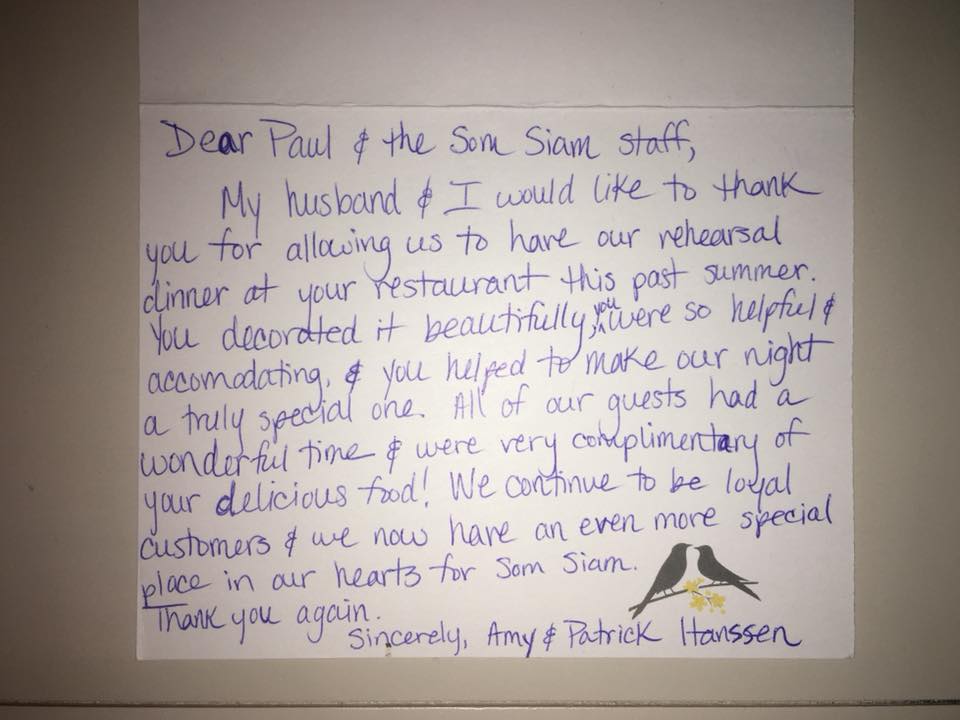 Dear Paul & the Som Siam staff,
My husband & I would like to thank
you for allowing us to have our rehearsal
dinner at your restaurant this past summer.
You decorated it beautifully, you were so helpful &
accomodating, & you helped to make our night
a truly special one. All of our guests had a
wonderful time & were very complimentary of
your delicious food! We continue to be loyal
customers & we now have an even more special
place in our hearts for Som Siam.
Thank you again.
Sincerely, Amy & Patrick Hanssen